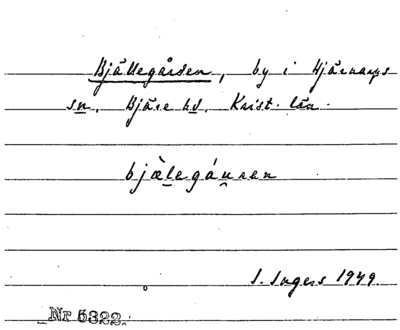 Bjällegården, by i Hjärnarps
sn. Bjäre hd. Krist. län.
bjälegáu̯ren
I. Ingers 1949.
Nr 5322.